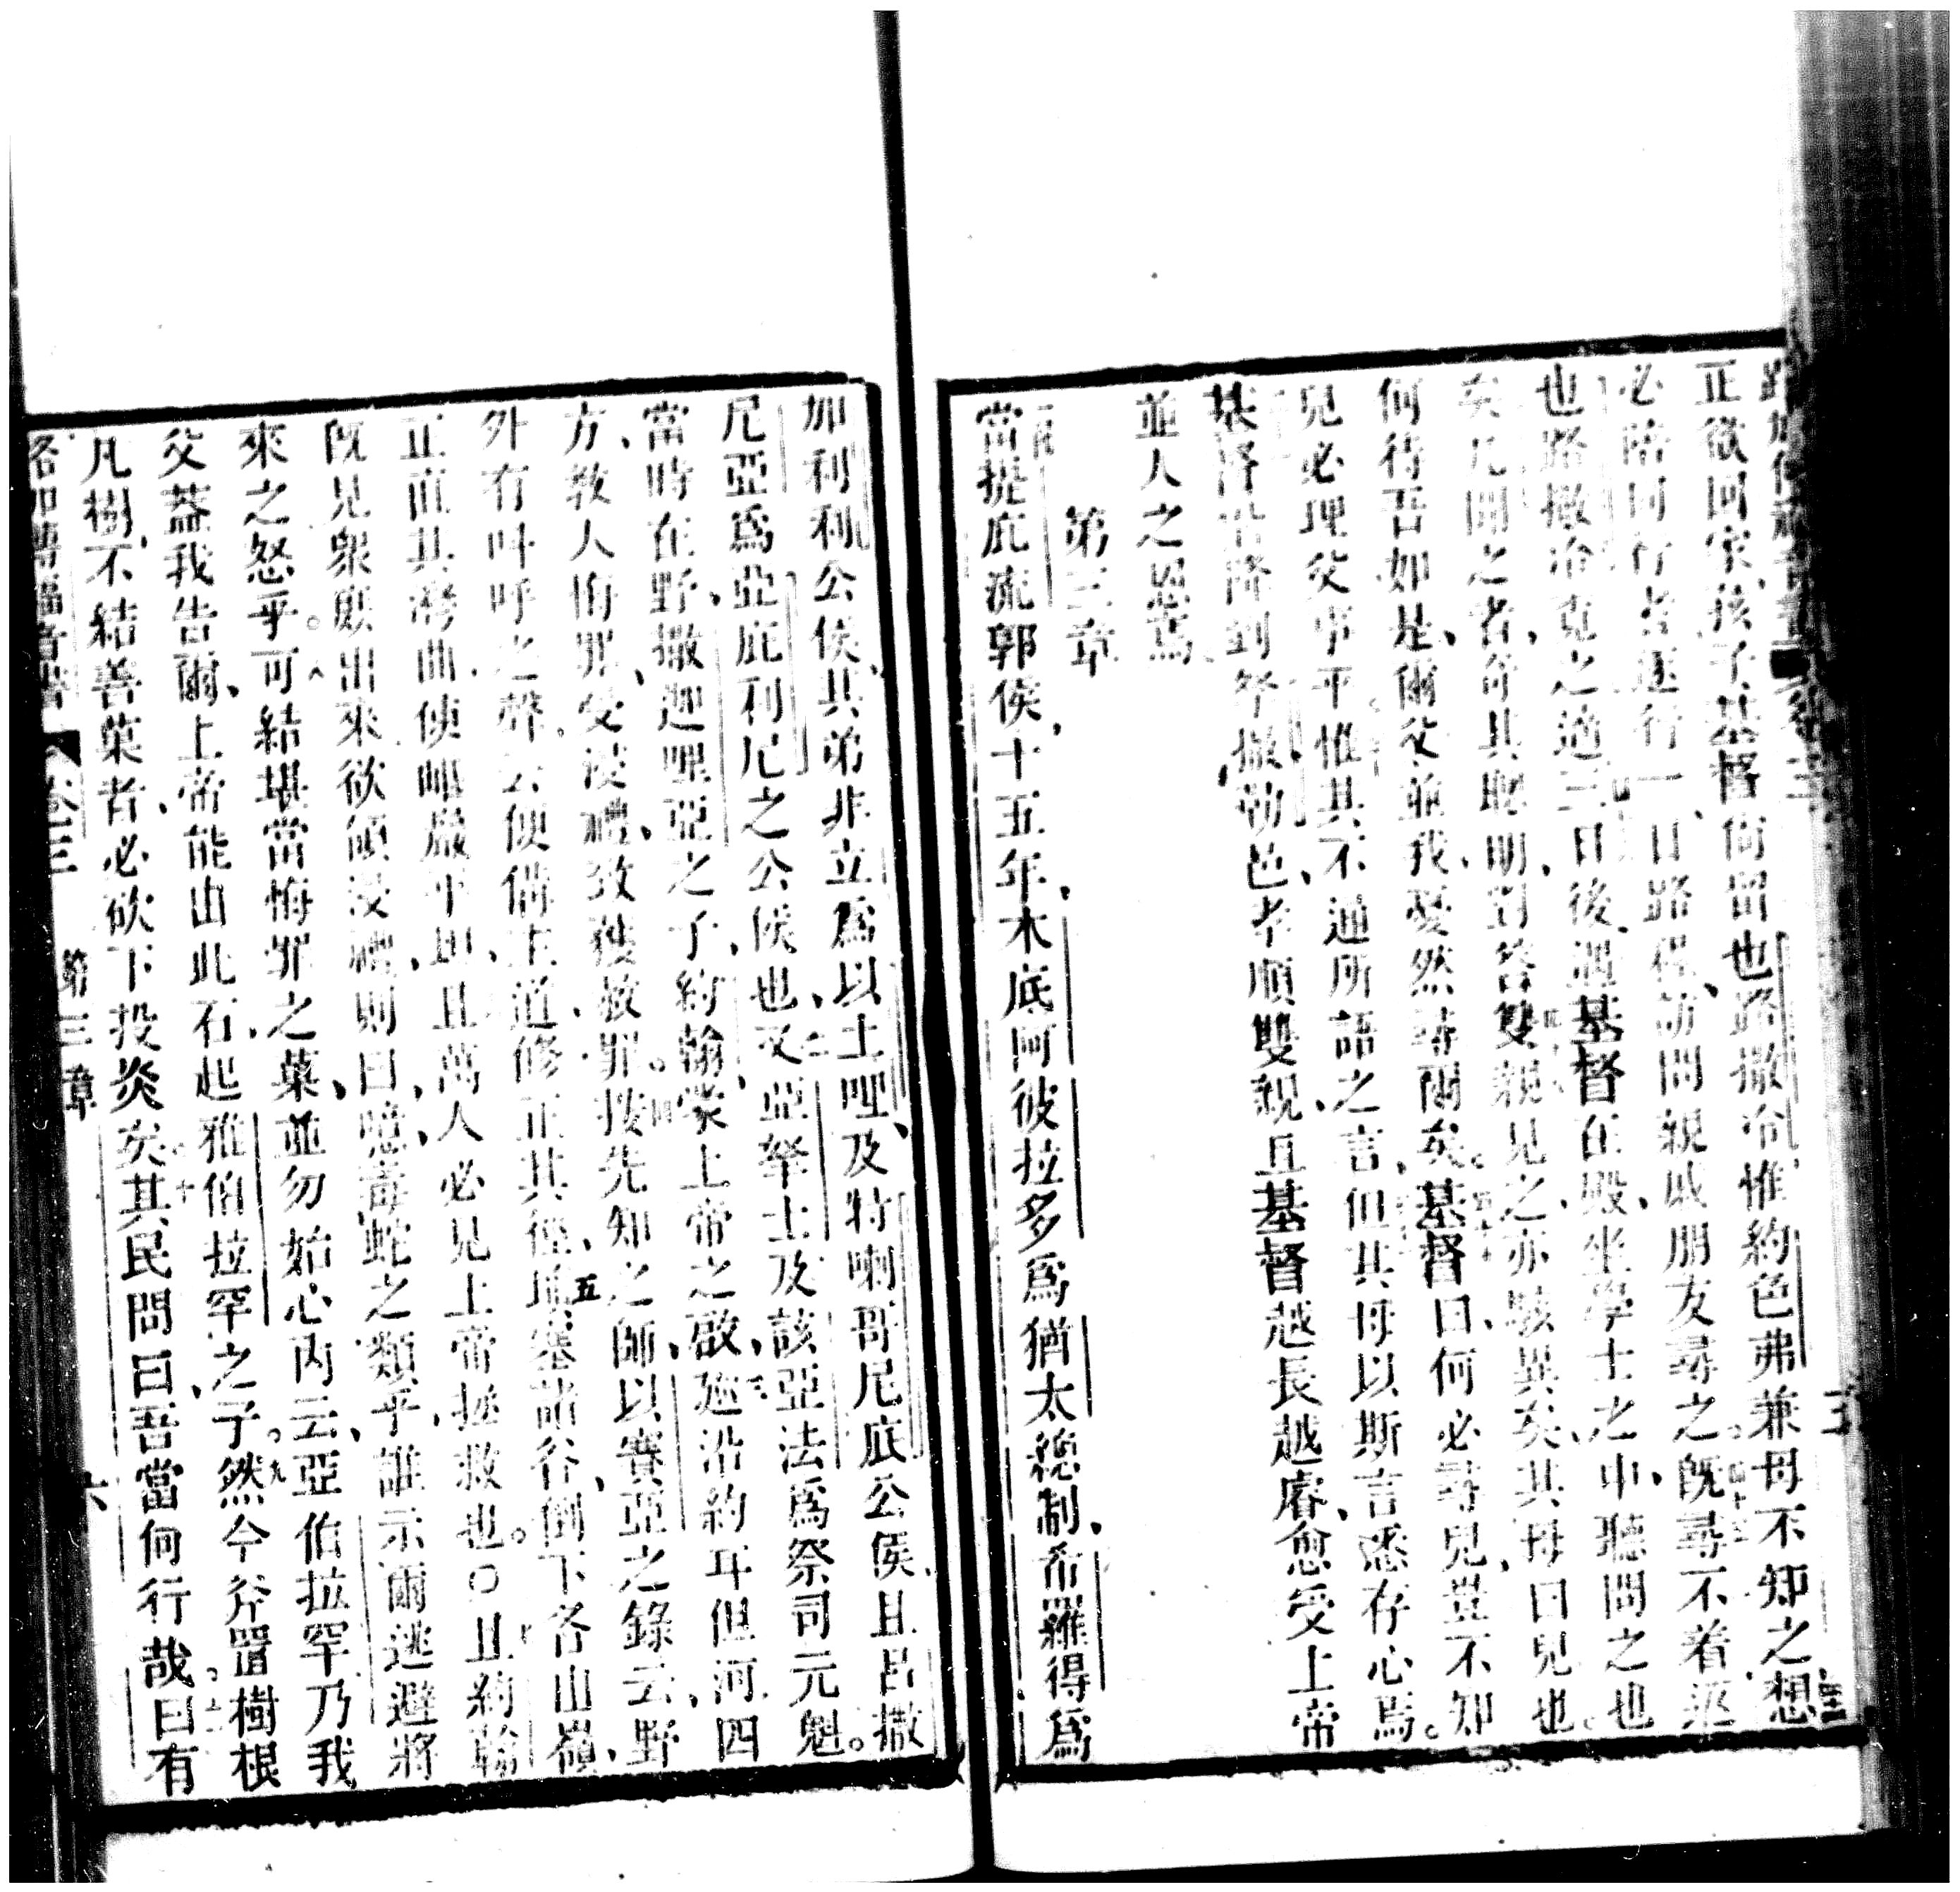 正欲回家孩子基督尚留也路撒冷惟約色弗兼母不知之想
必陪同行者遂行一日路程訪問親戚朋友尋之旣尋不着返
也路撒冷克之適三日後遇基督在殿坐學士之中聽問之也
矣凡聞之者奇其聰明對答雙親見之亦駭異矣其母曰兒也
何待吾如是爾父並我憂然尋爾矣基督曰何必尋兒豈不知
兒必理父事乎惟其不通所語之言但其母以斯言悉存心焉
基督沿降到拏撒勒邑孝順雙親且基督越長越睿愈受上帝
並人之恩焉
第三章
當提庇流郭侯十五年本底阿彼拉多爲猶太總制希羅得爲
加利利公侯其弟非立爲以土哩及特喇哥尼底公侯且呂撒
尼亞爲亞庇利尼之公侯也二又亞拏士及該亞法爲祭司元魁
當時在野撒迦哩亞之子約翰蒙上帝之啟三廵沿約耳但河四
方教人悔罪受浸禮致獲救罪四按先知之師以賽亞之錄云野
外有叫呼之聲云便備主道修正其徑五填塞諸谷倒下各山嶺
正直其灣曲使崎嚴平坦且萬人必見上帝拯救也〇且約翰
旣見衆厭出來欲領浸禮則曰噫毒蛇之類乎誰示爾逃避將
來之怒乎八可結堪當悔罪之菓並勿始心內云亞伯拉罕乃我
父葢我告爾上帝能由此石起雅伯拉罕之子九然今斧置樹根
凡樹不結善菓者必砍下投炎矣十其民問曰吾當何行哉曰有
路加傳福音書 卷三 第三章 六